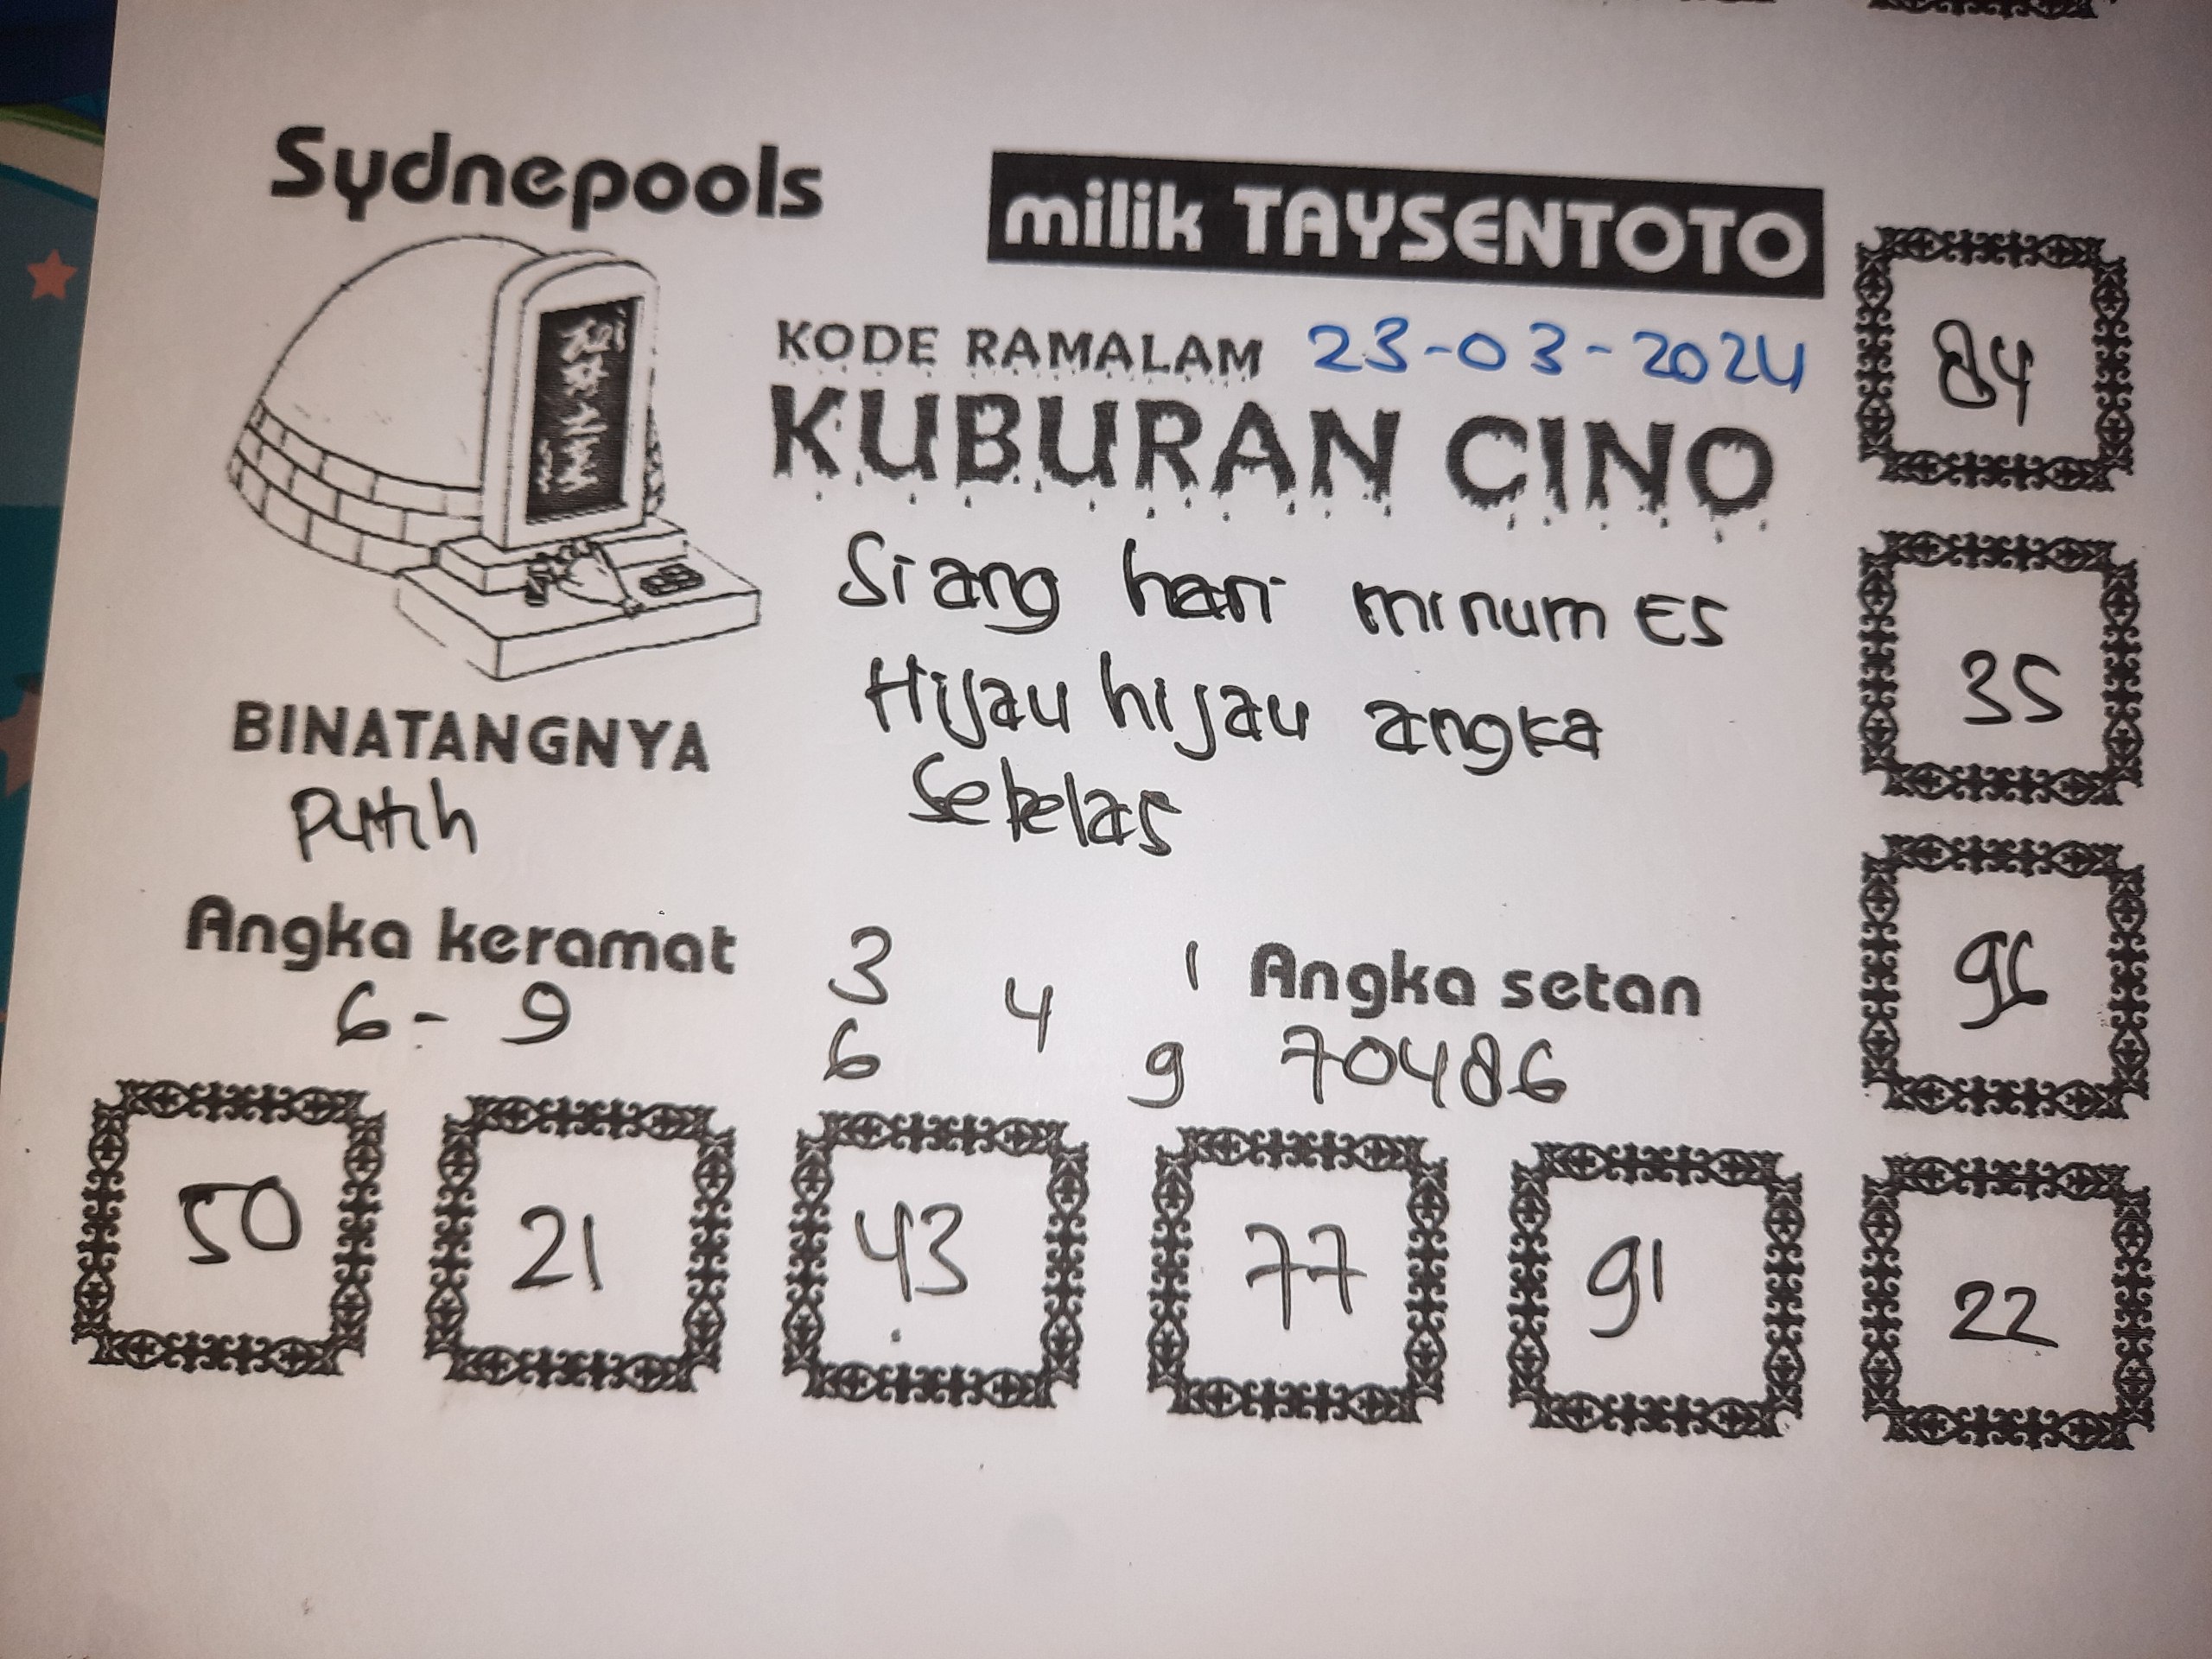 Sydnepools
milik TAYSENTOTO
KODE RAMALAM 23-03-2024
KUBURAN CINO
Siang hari minum ES
Hijau hijau angka
Sebelas
BINATANGNYA
Putih
Angka keramat
6 - 9
3 4 1
6 9
Angka setan
70486
84
35
96
50 21 43 77 91 22